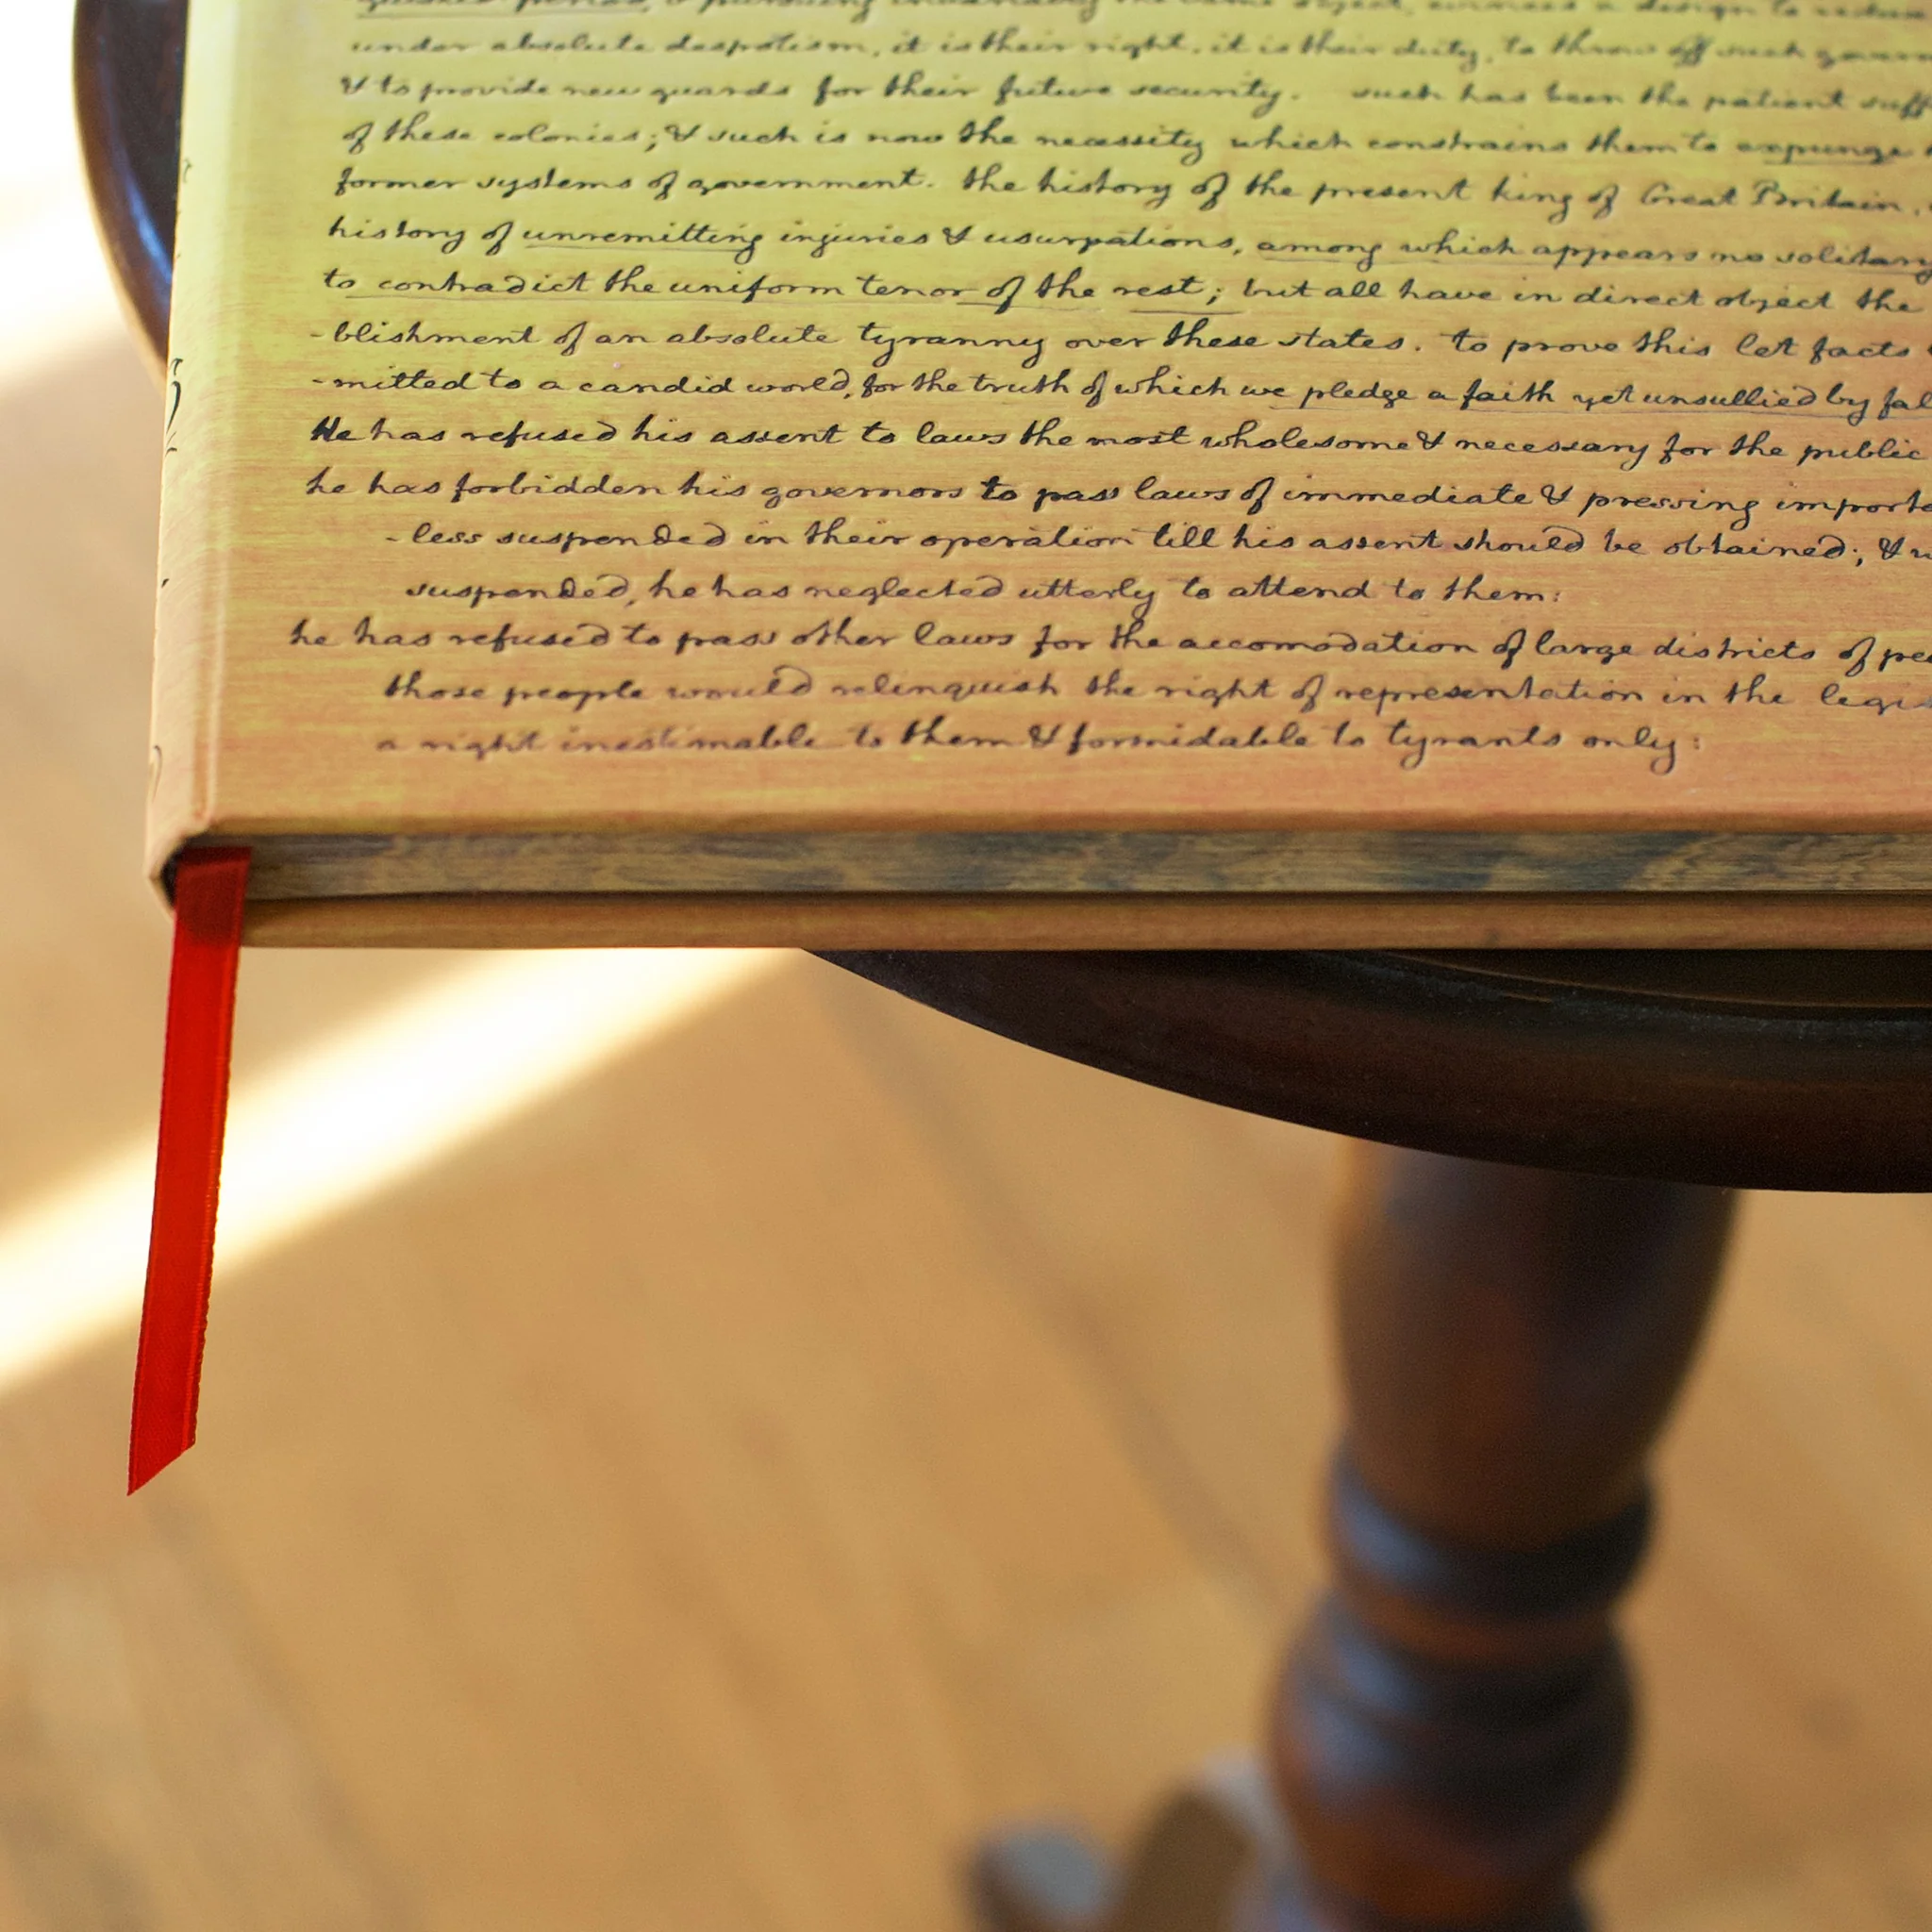 under absolute despotism, it is their right, it is their duty, to throw off such
& to provide new guards for their future security. such has been the patient suff
of these colonies; & such is now the necessity which constrains them to expunge
former systems of government. the history of the present king of Great Britain,
history of unremitting injuries & usurpations, among which appears no solitary
to contradict the uniform tenor of the rest; but all have in direct object the
-blishment of an absolute tyranny over these states. to prove this let facts
-mitted to a candid world, for the truth of which we pledge a faith yet unsullied by fal
He has refused his assent to laws the most wholesome & necessary for the public
he has forbidden his governors to pass laws of immediate & pressing importa
-less suspended in their operation till his assent should be obtained; &
suspended, he has neglected utterly to attend to them:
he has refused to pass other laws for the accomodation of large districts of peo
those people would relinquish the right of representation in the legis
a right inestimable to them & formidable to tyrants only: